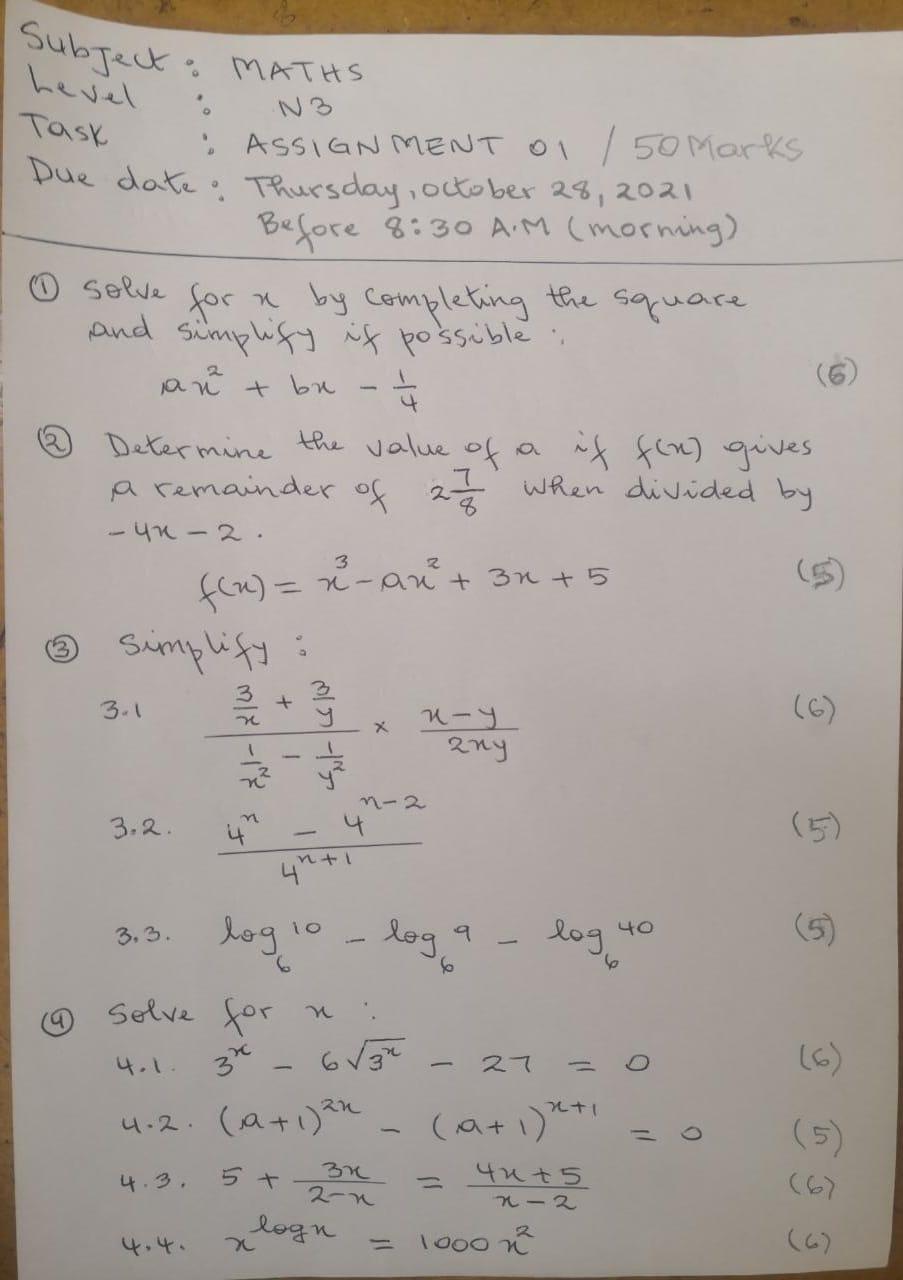 Subject : MATHS
Level : N3
Task : ASSIGNMENT 01 / 50 Marks
Due date : Thursday, october 28, 2021
Before 8:30 A.M (morning)
① Solve for x by Completing the square
and simplify if possible :
ax² + bx - 1/4 (6)
② Determine the value of a if f(x) gives
a remainder of 2 7/8 when divided by
-4x - 2.
f(x) = x³ - ax² + 3x + 5 (5)
③ Simplify :
3.1 (3/x + 3/y)/(1/x² - 1/y²) × (x-y)/(2xy) (6)
3.2. (4ⁿ - 4ⁿ⁻²)/(4ⁿ⁺¹) (5)
3.3. log₆ 10 - log₆ 9 - log₆ 40 (5)
④ Solve for x :
4.1. 3ˣ - 6√3ˣ - 27 = 0 (6)
4.2. (a+1)²ˣ - (a+1)ˣ⁺¹ = 0 (5)
4.3. 5 + 3x/(2-x) = (4x+5)/(x-2) (6)
4.4. x^(log x) = 1000x² (6)